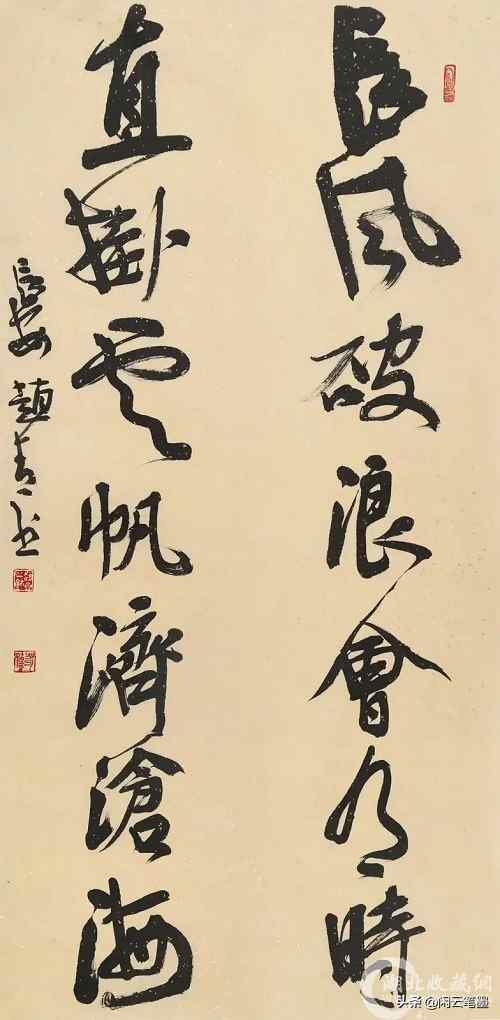 長風破浪會有時
直掛雲帆濟滄海
長安趙青書
湖北收藏網
头条 @闲云笔墨